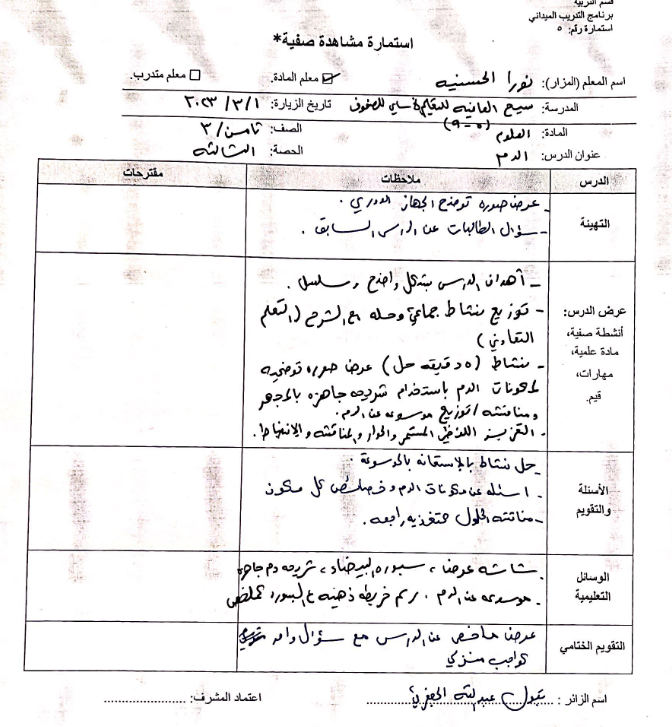 قسم التربية
برنامج التدريب الميداني
استمارة رقم: ٥
استمارة مشاهدة صفية*
اسم المعلم (المزار): نورا الحسنيه ☑ معلم المادة. ☐ معلم متدرب.
المدرسة: سيح العافيه للتعليم الأساسي للصفوف (٥-٩) تاريخ الزيارة: ٢٠٢٣/٣/١
المادة: العلوم الصف: ثامن/٣
عنوان الدرس: الدم الحصة: الثالثه
الدرس ملاحظات مقترحات
التهيئة
- عرض صوره توضح الجهاز الدوري.
- سؤال الطالبات عن الدرس السابق.
عرض الدرس:
أنشطة صفية،
مادة علمية،
مهارات،
قيم.
- أهداف الدرس بشكل واضح وسلسل.
- توزيع نشاط جماعي وحله مع الشرح (التعلم
التعاوني)
- نشاط (٥ دقيقه حل) عرض صوره توضيحيه
لمكونات الدم باستخدام شريحه جاهزه بالمجهر
ومناقشته / توزيع موسوعه عن الدم.
- التعزيز اللفظي المستمر والحوار والمناقشه والانضباط.
الأسئلة
والتقويم
- حل نشاط بالإستعانه بالموسوعة.
- اسئله عن مكونات الدم وخصائص كل مكون
- مناقشه الحلول كتغذيه راجعه.
الوسائل
التعليمية
- شاشه عرض، سبوره البيضاء، شريحه دم جاهزه
- موسوعه عن الدم. رسم خريطه ذهنيه ع السبوره كملخص
التقويم الختامي
عرض ملخص عن الدرس مع سؤال واحد
كواجب منزلي
اسم الزائر: بتول عبدالله اعتماد المشرف: ....................